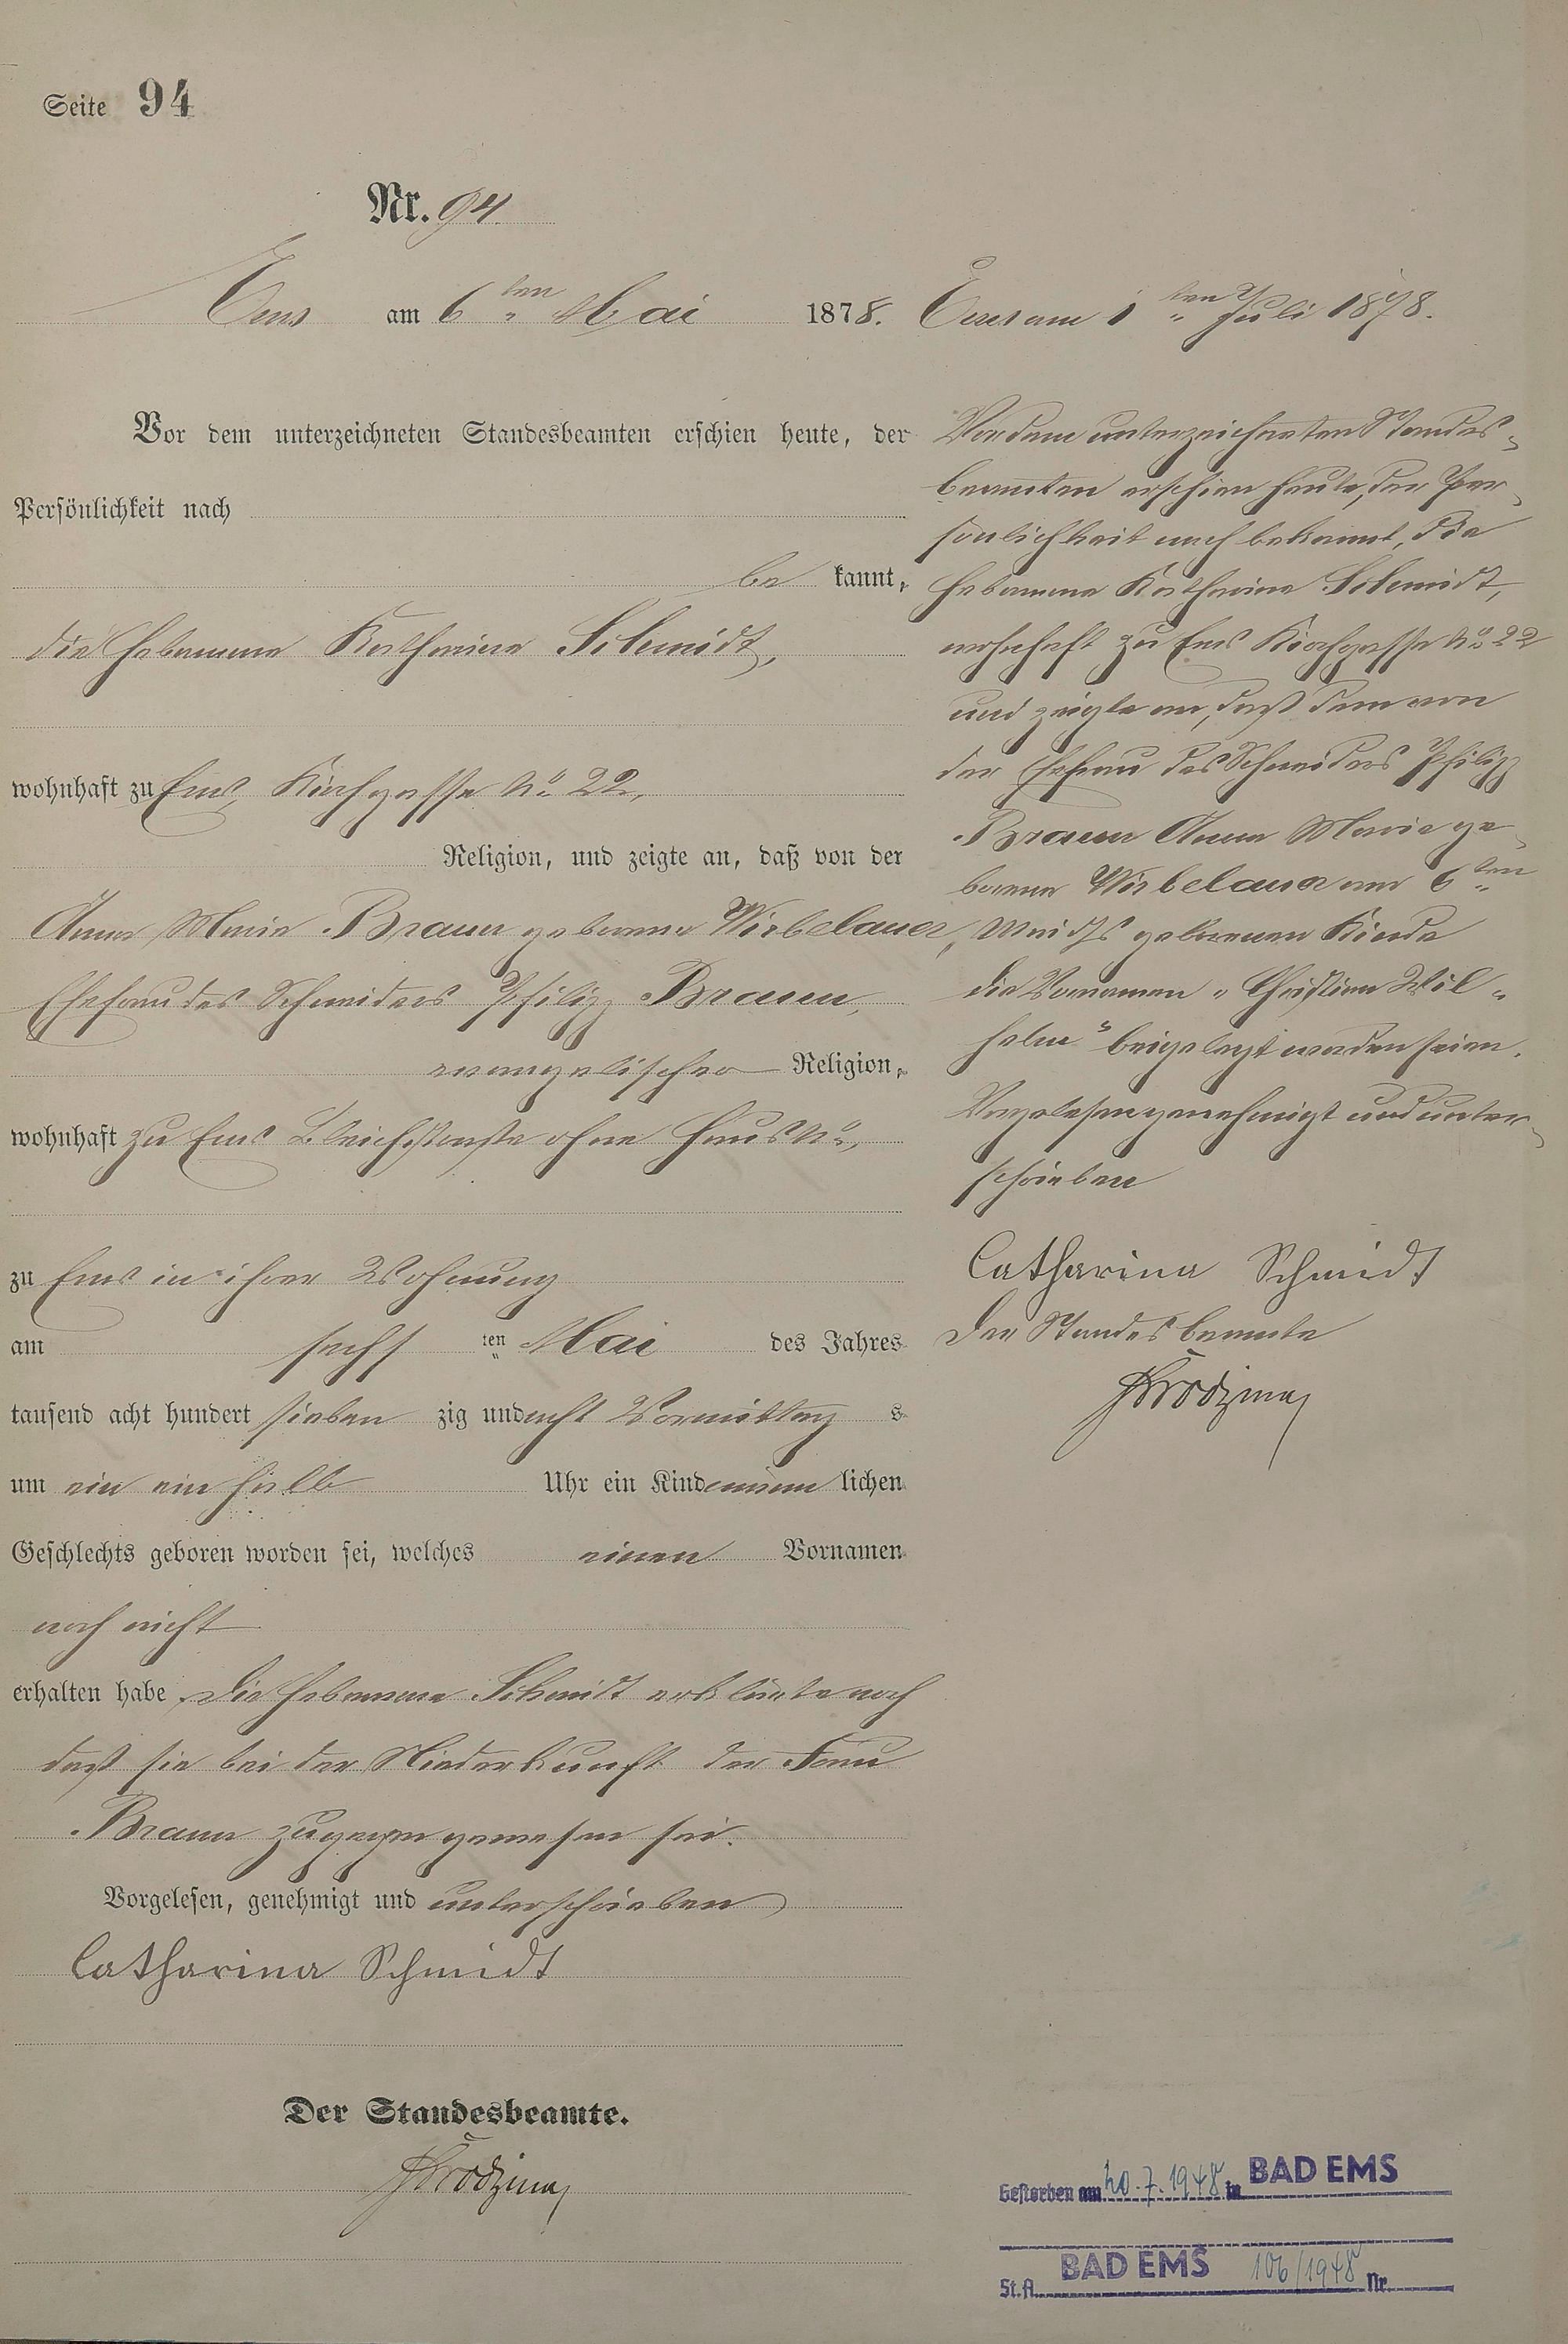 Seite 94
Nr. 94.
Ems am 6ten Mai 1878.
Vor dem unterzeichneten Standesbeamten erschien heute, der
Persönlichkeit nach
bekannt,
die Hebamme Katharina Schmidt,
wohnhaft zu Ems, Kirchgasse No 22,
Religion, und zeigte an, daß von der
Anna Maria Braun geborene Wirbelauer,
Ehefrau des Schneiders Philipp Braun,
evangelischer Religion,
wohnhaft zu Ems Bleichstraße ohne Haus No,
zu Ems in ihrer Wohnung
am sechsten Mai des Jahres
tausend acht hundert siebenzig und acht Vormittags
um ein ein halb Uhr ein Kind männlichen
Geschlechts geboren worden sei, welches einen Vornamen
noch nicht
erhalten habe. Die Hebamme Schmidt erklärte noch
daß sie bei der Niederkunft der Frau
Braun zugegen gewesen sei.
Vorgelesen, genehmigt und unterschrieben
Catharina Schmidt
Der Standesbeamte.
Ems am 1ten Juli 1878.
Vor dem unterzeichneten Standes-
beamten erschien heute, der Per-
sönlichkeit nach bekannt, die
Hebamme Katharina Schmidt,
wohnhaft zu Ems Kirchgasse No 22
und zeigte an, daß dem von
der Ehefrau des Schneiders Philipp
Braun Anna Maria ge-
borene Wirbelauer am 6ten
geborenen Kinde
die Vornamen "Christian Wil-
helm" beigelegt worden seien.
Vorgelesen genehmigt und unter-
schrieben
Catharina Schmidt
Der Standesbeamte
Gestorben am 20.7.1948 in BAD EMS
St.A. BAD EMS 106/1948 Nr.